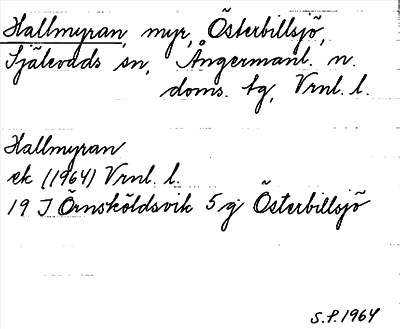 Hallmyran, myr, Österbillsjö,
Själevads sn, Ångermanl. n.
doms. tg, Vrnl. l.
Hallmyran
ek (1964) Vrnl. l.
19 J Örnsköldsvik 5 g Österbillsjö
S.P. 1964